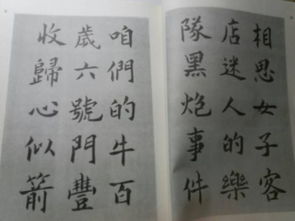 相思女子客
店迷人的樂
隊黑炮事件
咱們的牛百
歲六號門豐
收歸心似箭